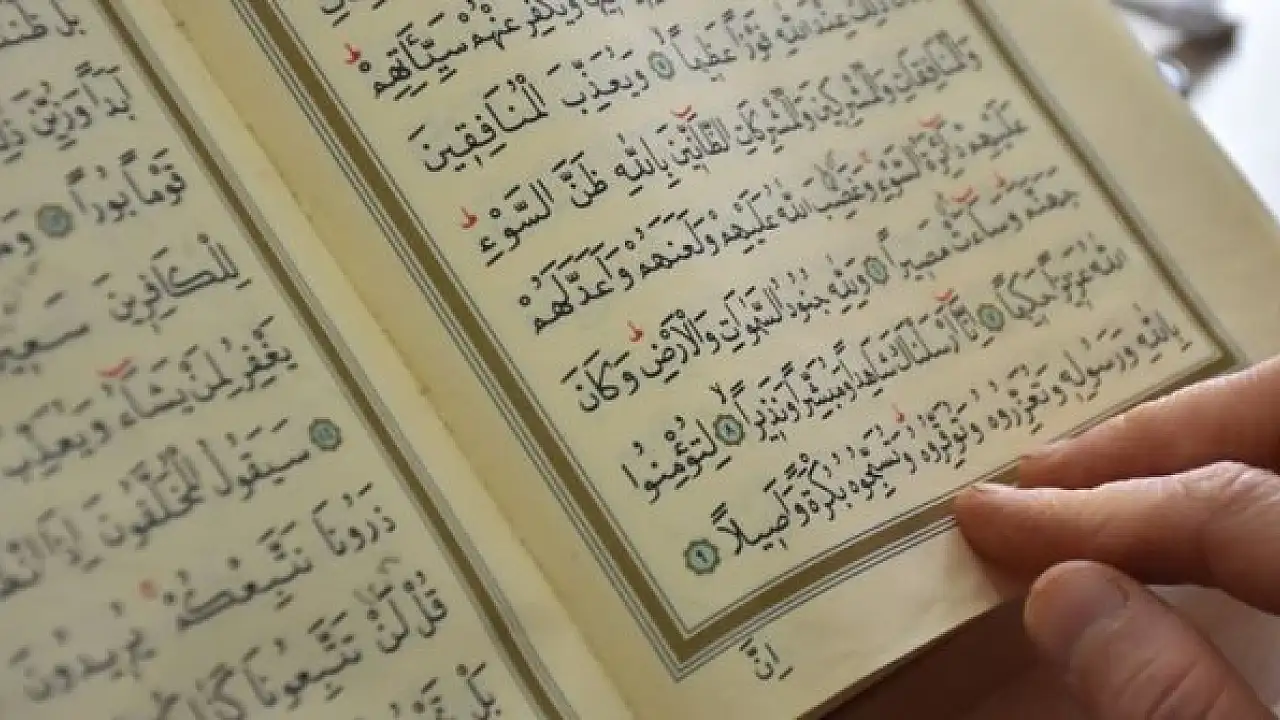 وَيُكَفِّرَ عَنْهُمْ سَيِّئَاتِهِمْ ط
ذٰلِكَ عِنْدَ اللّٰهِ فَوْزاً عَظِيماً ٥ وَيُعَذِّبَ الْمُنَافِقِينَ
وَالْمُنَافِقَاتِ وَالْمُشْرِكِينَ وَالْمُشْرِكَاتِ الظَّانِّينَ بِاللّٰهِ ظَنَّ السَّوْءِ ط
عَلَيْهِمْ دَائِرَةُ السَّوْءِ وَغَضِبَ اللّٰهُ عَلَيْهِمْ وَلَعَنَهُمْ وَاَعَدَّ لَهُمْ
جَهَنَّمَ وَسَاءَتْ مَصِيراً ٦ وَلِلّٰهِ جُنُودُ السَّمٰوَاتِ وَالْاَرْضِ ط وَكَانَ
اللّٰهُ عَزِيزاً حَكِيماً ٧ اِنَّا اَرْسَلْنَاكَ شَاهِداً وَمُبَشِّراً وَنَذِيراً ٨ لِتُؤْمِنُوا
بِاللّٰهِ وَرَسُولِهِ وَتُعَزِّرُوهُ وَتُوَقِّرُوهُ ط وَتُسَبِّحُوهُ بُكْرَةً وَاَصِيلاً ٩
اِنَّ
بَلْ
اَبَداً وَزُيِّنَ
قَوْماً بُوراً ١٢
لِلْكَافِرِينَ سَعِيراً
يَغْفِرُ لِمَنْ يَشَاءُ وَيُعَذِّبُ
١٤ سَيَقُولُ الْمُخَلَّفُونَ اِذَا
ذَرُونَا نَتَّبِعْكُمْ يُرِيدُونَ
قُلْ لَنْ تَتَّبِعُونَا
بَلْ